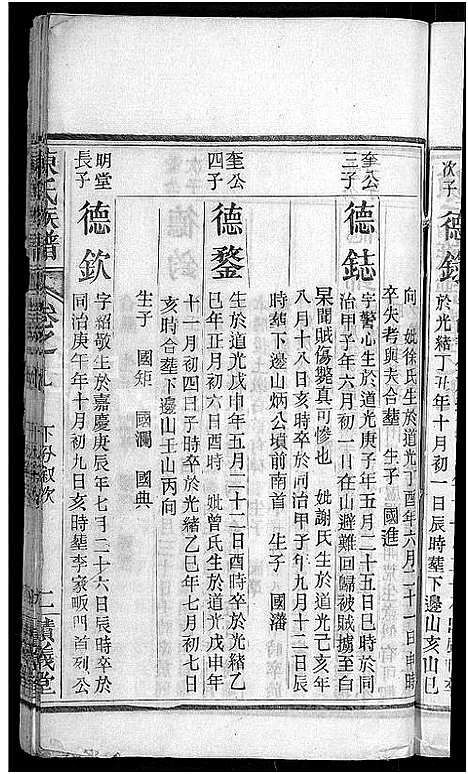 次子
德
於光緒丁丑年十月初一日辰時塟下邊山亥山巳
向 妣徐氏生於道光丁酉年六月二十一日申時
卒失考與夫合塟 生子 國進
奎公三子
德鋕
字警心生於道光庚子年五月二十五日巳時於同
治甲子年六月初一日在山避難回歸被賊擄至白
杲鬧賊傷斃真可慘也 妣謝氏生於道光己亥年
八月十八日亥時於同治甲子年九月十二日辰
時塟下邊山炳公墳前南首 生子 國藩
奎公四子
德鍪
生於道光戊申年五月二十二日酉時卒於光緒乙
巳年正月初六日酉時 妣曾氏生於道光戊申年
十一月初四日子時卒於光緒乙巳年七月初七日
亥時合塟下邊山壬山丙向
生子 國矩 國瀾 國典
明堂長子
德欽
字紹敬生於嘉慶庚辰年七月二十六日辰時卒於
同治庚午年十月初九日亥時塟李家畈門首列公
陳氏族譜
卷之一九
下分叙次
二
積義堂